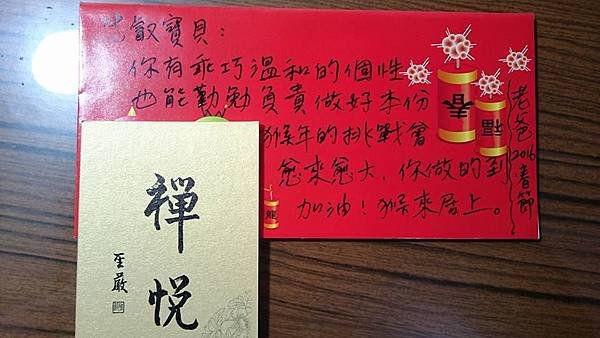 叡寶貝：
你有乖巧溫和的個性
也能勤勉負責做好本份
猴年的挑戰會
愈來愈大，你做的到
加油！猴來居上。
老爸2016春節
春
福
龍
禪悅
聖嚴